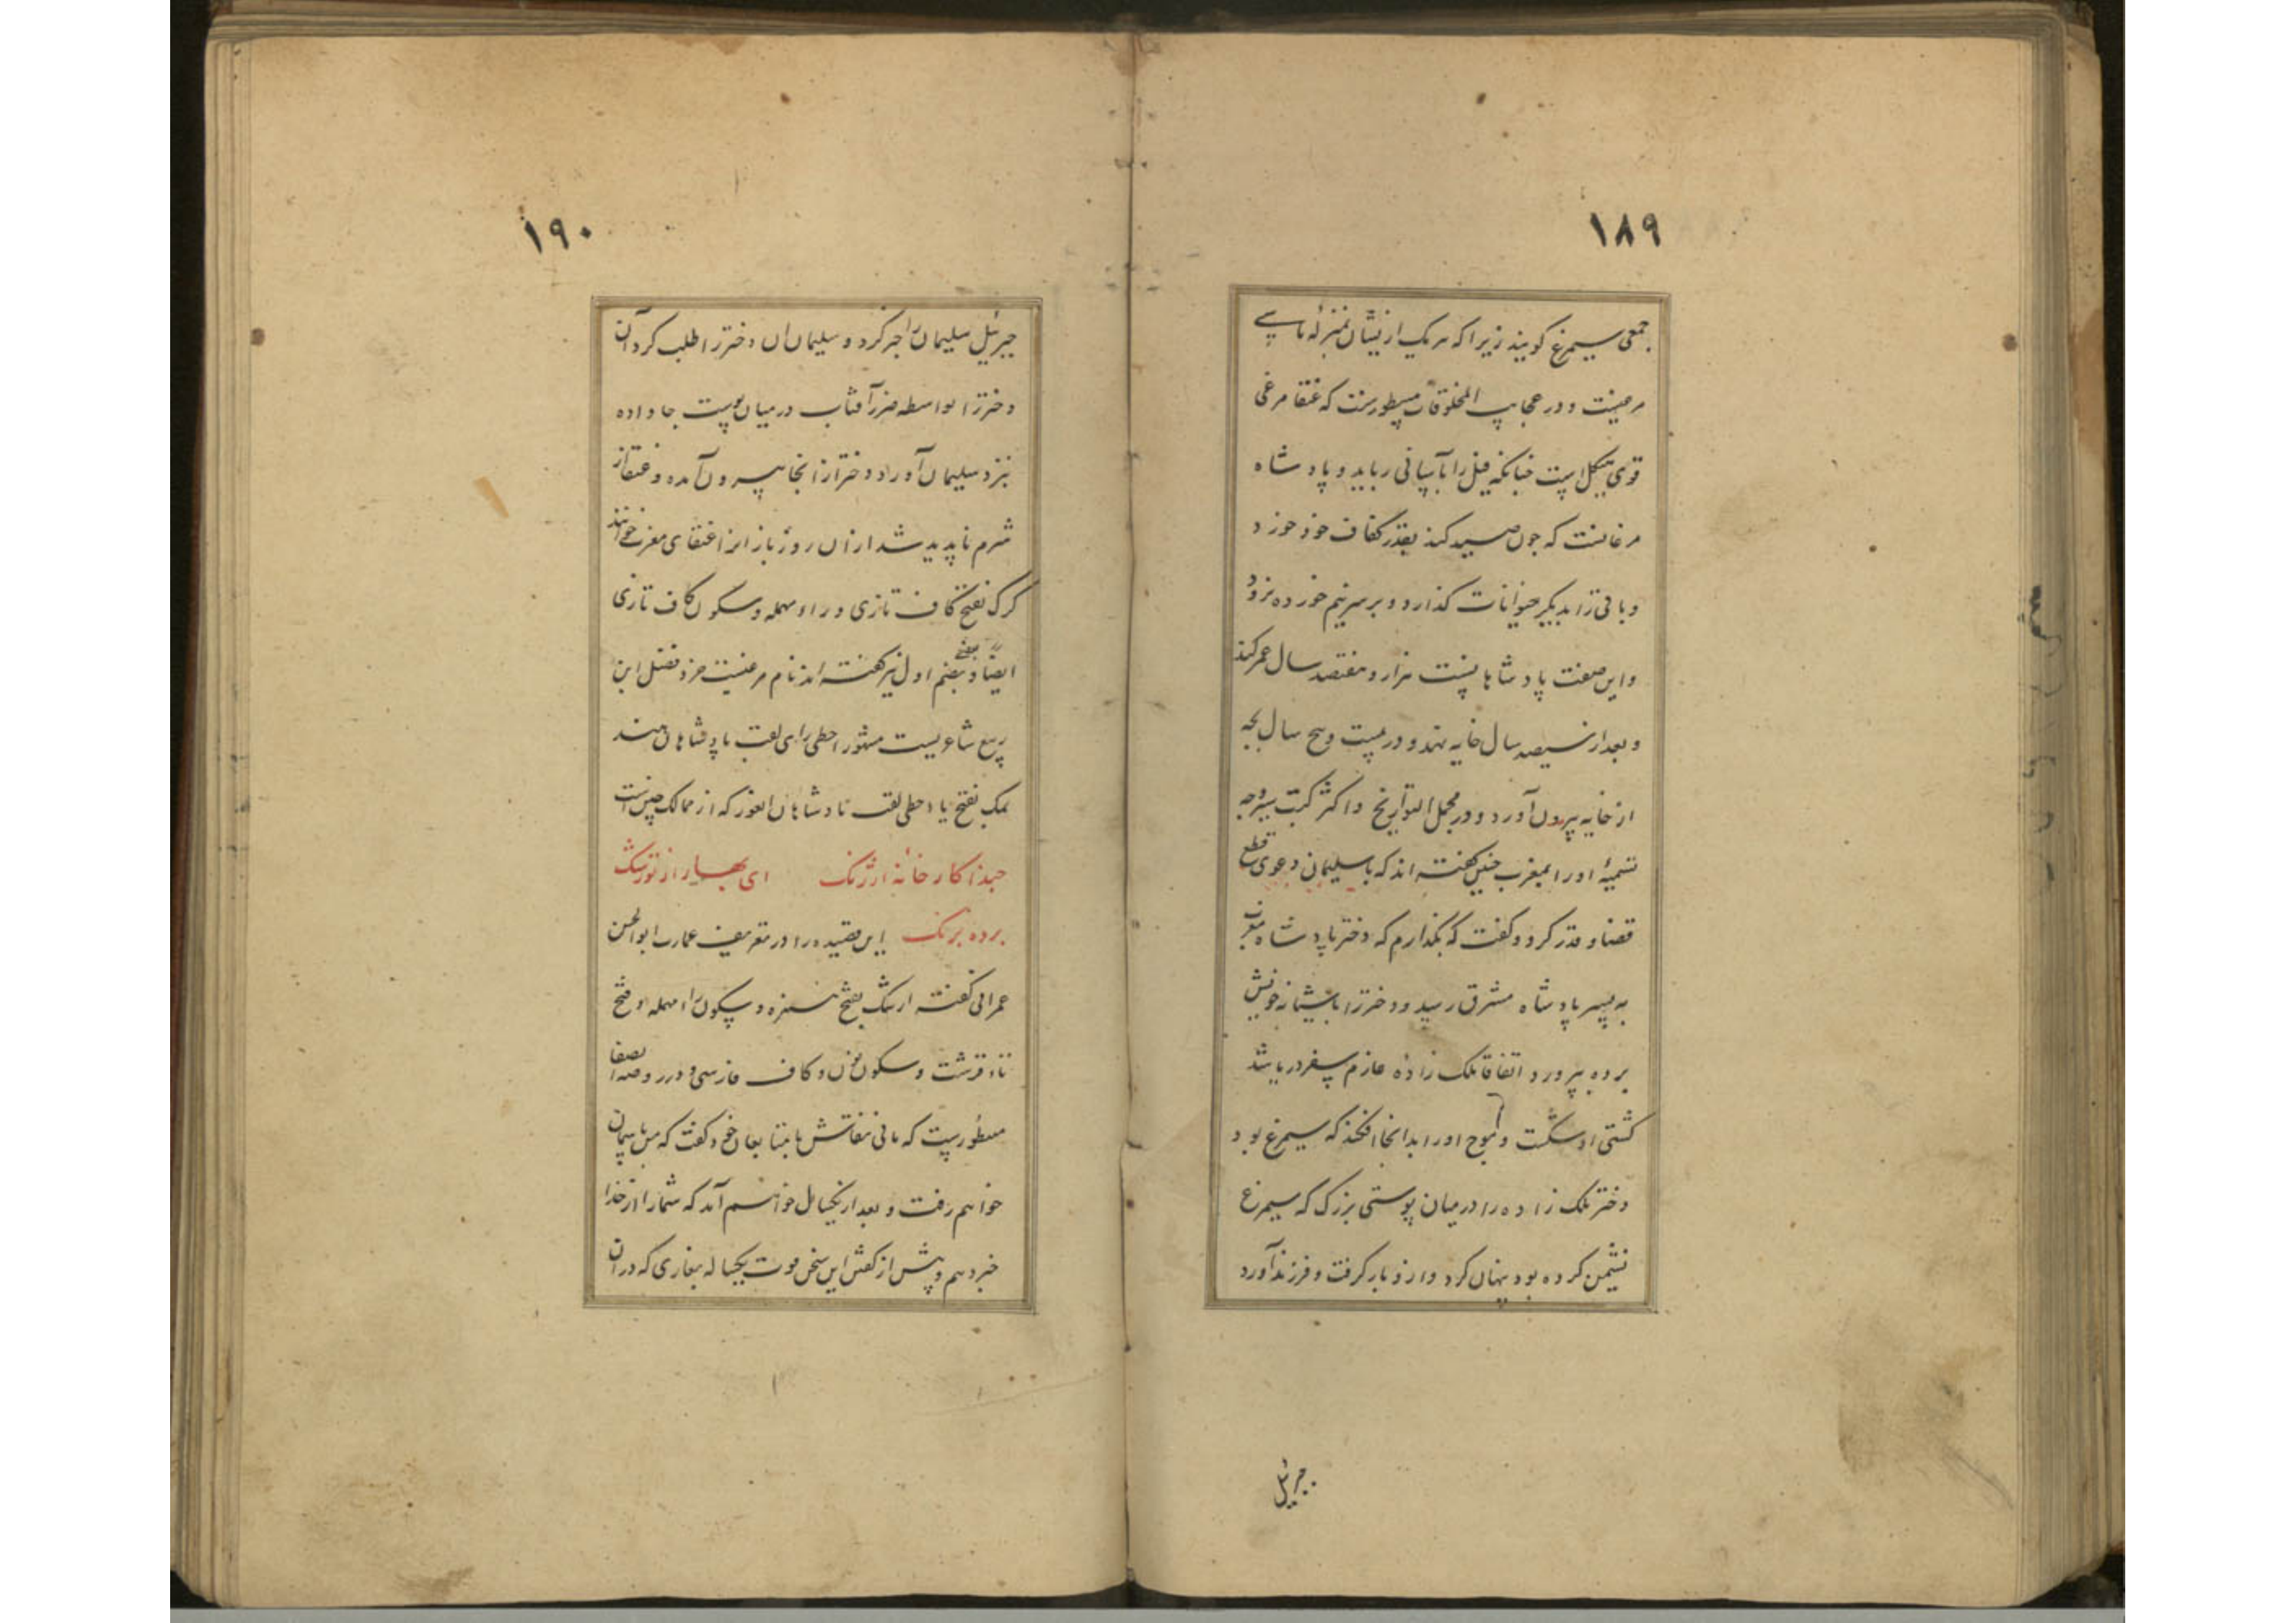 ۱۸۹
جمعی سیمرغ کویند زیرا که هر یک از ایشان بمنزلهٔ ماسی
مرغیست و در عجایب المخلوقات مسطورست که عنقا مرغی
قوی هیکل است چنانکه فیل را بآسانی رباید و پادشاه
مرغانست که چون صید کند بقدر کفاف خود خورد
و باقی را بدیگر حیوانات کذارد و بر سر نیم خورده نرود
و این صفت پادشاهانست هزار و هفتصد سال عمر کند
و بعد از سیصد سال خایه نهد و در بیست و پنج سال بچه
از خایه بیرون آورد و در مجمل التواریخ و اکثر کتب سیر وجه
تسمیهٔ او را بمغرب چنین کفته اند که با سلیمان دعوی قطع
قضا و قدر کرد و کفت که نکذارم که دختر پادشاه مغرب
به پسر پادشاه مشرق رسد و دختر را بآشیانه خویش
برده بپرورد اتفاقا ملک زاده عازم سفر دریا شد
کشتی او شکست و موج او را بدانجا افکند که سیمرغ بود
دختر ملک زاده را در میان پوستی بزرک که سیمرغ
نشیمن کرده بود پنهان کرد و ازو بار کرفت و فرزند آورد
جبرئیل
۱۹۰
جبرئیل سلیمان را خبر کرد و سلیمان آن دختر را طلب کرد آن
دختر را بواسطه ضرر آفتاب در میان پوست جا داده
نزد سلیمان آورد و دختر از انجا بیرون آمده و عنقا از
شرم ناپدید شد ازان روز باز او را عنقای مغرب خوانند
کرک بفتح کاف تازی و راء مهمله و سکون کاف تازی
ایضا و بعضی بضم اول نیز کفته اند نام مرغیست خرد فضل ابن
ربیع شاعریست مشهور احطی رای لقب پادشاهان هند
یمک بفتح یا و حطی لقب پادشاهان ایغور که از ممالک چین است
حبذا کارخانهٔ ارژنک ای بهار از تو رشک
برده برنک این قصیده را در تعریف عمارت ابو الحسن
عمرانی کفته ارتنک بفتح همزه و سکون راء مهمله و فتح
تاء قرشت و سکون نون و کاف فارسی و در روضة الصفا
مسطورست که مانی نقاش با متابعان خود کفت که من باسمان
خواهم رفت و بعد از یکسال خواهم آمد که شما را از خدا
خبر دهم و پیش از کفتن این سخن قوت یکساله بغاری که دران